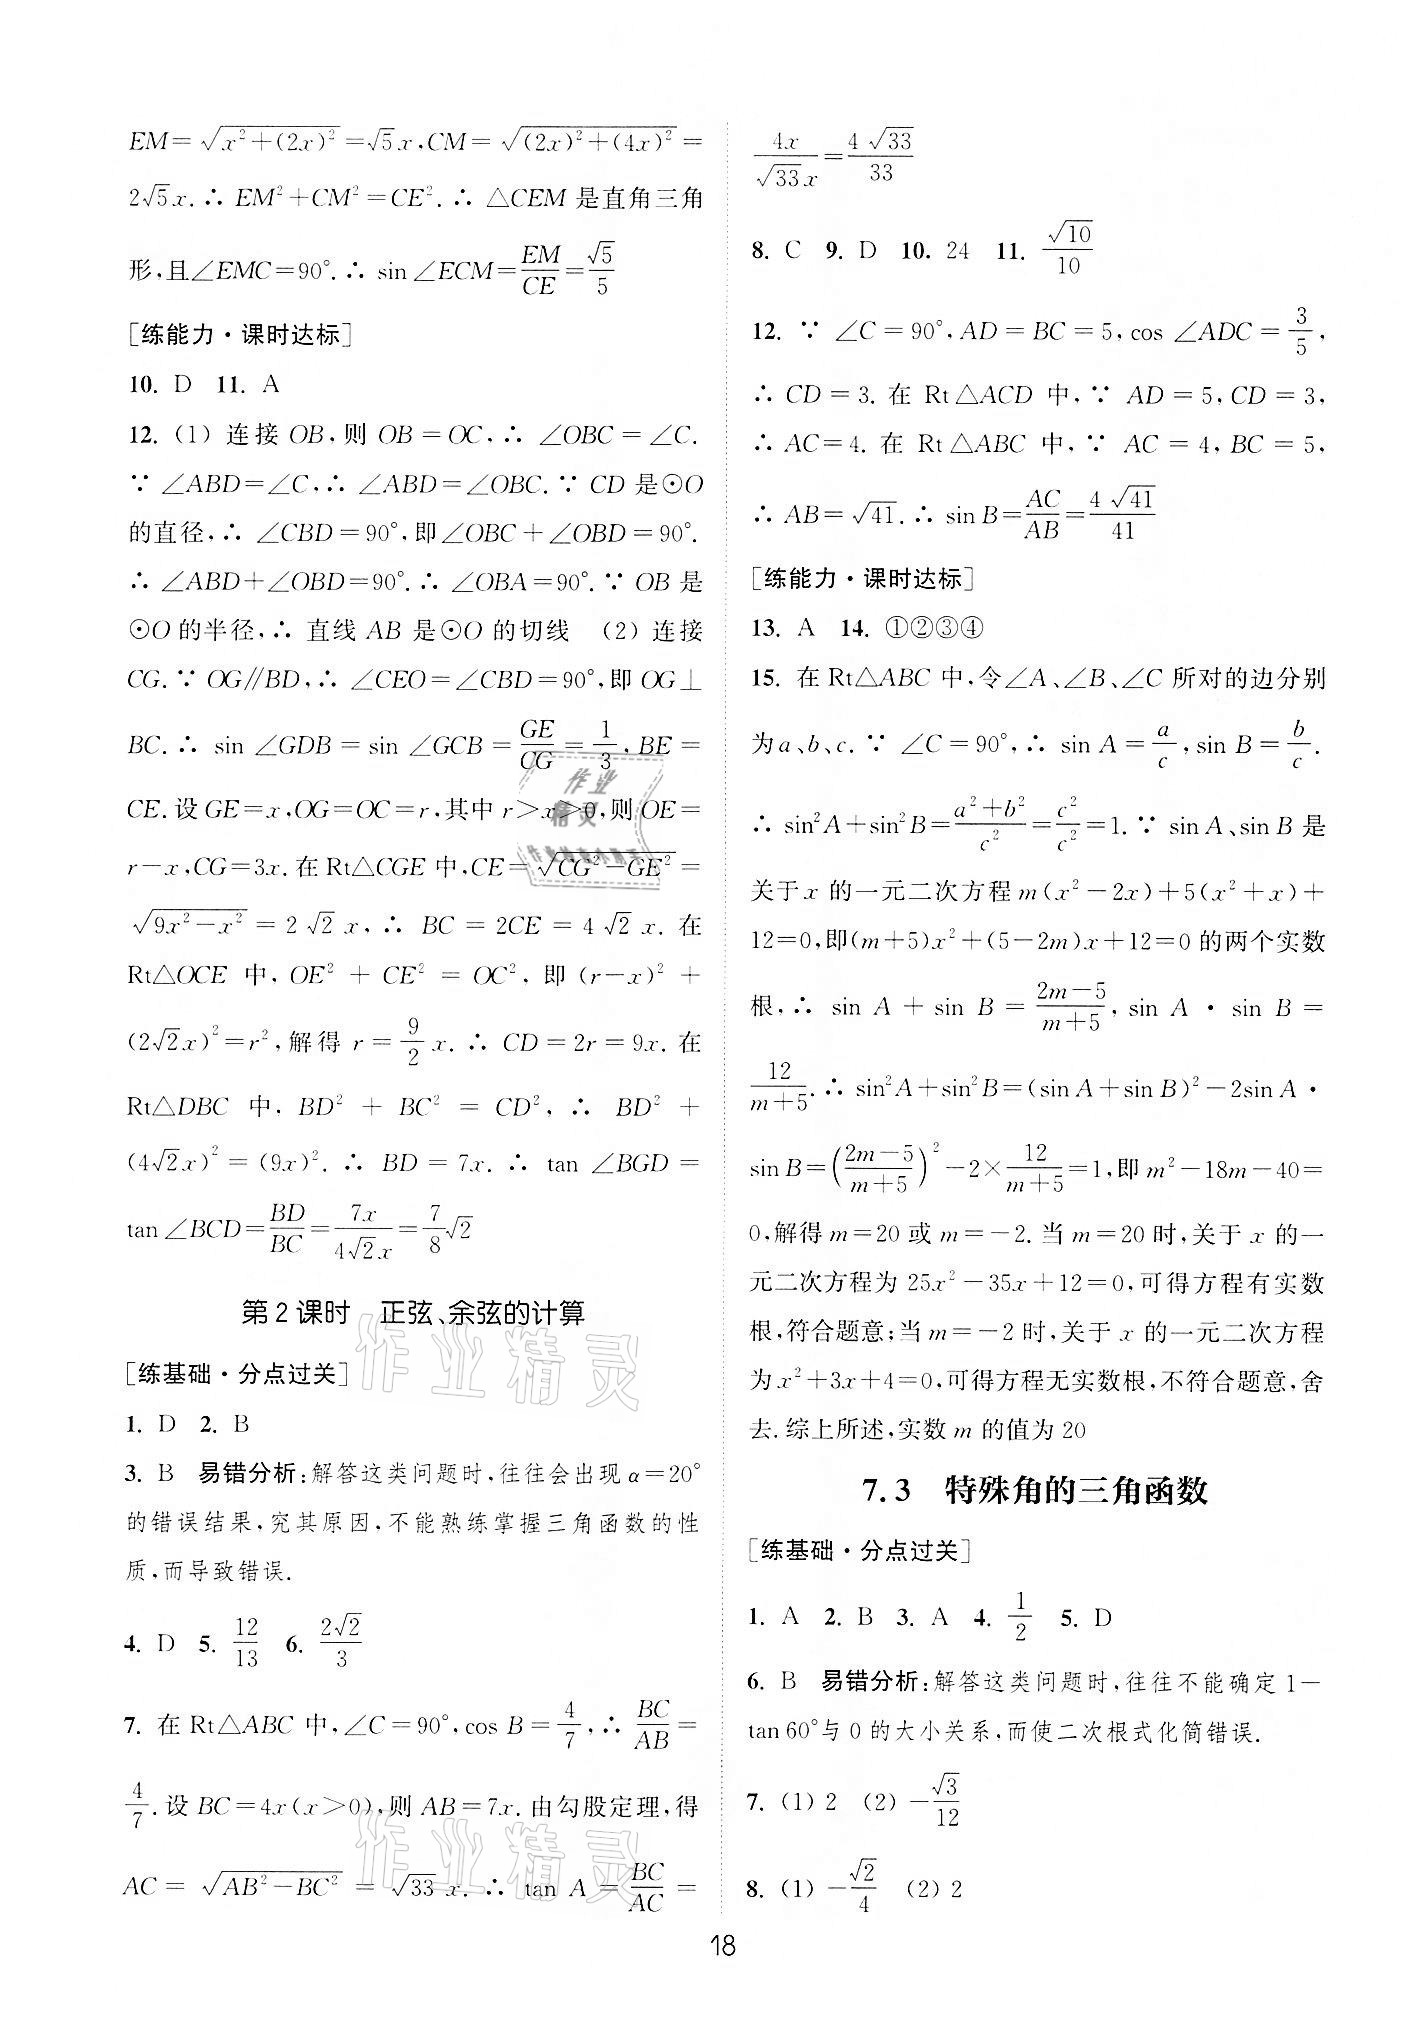 EM=√(x²+(2x)²)=√5x,CM=√((2x)²+(4x)²)=
2√5x.∴ EM²+CM²=CE².∴ △CEM是直角三角
形,且∠EMC=90°.∴ sin∠ECM=EM/CE=√5/5
[练能力·课时达标]
10. D 11. A
12. (1) 连接OB,则OB=OC,∴ ∠OBC=∠C.
∵ ∠ABD=∠C,∴ ∠ABD=∠OBC.∵ CD是⊙O
的直径,∴ ∠CBD=90°,即∠OBC+∠OBD=90°.
∴ ∠ABD+∠OBD=90°.∴ ∠OBA=90°.∵ OB是
⊙O的半径,∴ 直线AB是⊙O的切线 (2) 连接
CG.∵ OG∥BD,∴ ∠CEO=∠CBD=90°,即OG⊥
BC.∴ sin∠GDB=sin∠GCB=GE/CG=1/3,BE=
CE.设GE=x,OG=OC=r,其中r>x>0,则OE=
r-x,CG=3x.在Rt△CGE中,CE=√(CG²-GE²)=
√(9x²-x²)=2√2x,∴ BC=2CE=4√2x.在
Rt△OCE中,OE²+CE²=OC²,即(r-x)²+
(2√2x)²=r²,解得r=9/2x.∴ CD=2r=9x.在
Rt△DBC中,BD²+BC²=CD²,∴ BD²+
(4√2x)²=(9x)².∴ BD=7x.∴ tan∠BGD=
tan∠BCD=BD/BC=7x/4√2x=7/8√2
第2课时 正弦、余弦的计算
[练基础·分点过关]
1. D 2. B
3. B 易错分析:解答这类问题时,往往会出现α=20°
的错误结果,究其原因,不能熟练掌握三角函数的性
质,而导致错误.
4. D 5. 12/13 6. 2√2/3
7. 在Rt△ABC中,∠C=90°,cos B=4/7,∴ BC/AB=
4/7.设BC=4x(x>0),则AB=7x.由勾股定理,得
AC=√(AB²-BC²)=√33x.∴ tan A=BC/AC=
4x/√33x=4√33/33
8. C 9. D 10. 24 11. √10/10
12. ∵ ∠C=90°,AD=BC=5,cos∠ADC=3/5,
∴ CD=3.在Rt△ACD中,∵ AD=5,CD=3,
∴ AC=4.在Rt△ABC中,∵ AC=4,BC=5,
∴ AB=√41.∴ sin B=AC/AB=4√41/41
[练能力·课时达标]
13. A 14. ①②③④
15. 在Rt△ABC中,令∠A、∠B、∠C所对的边分别
为a、b、c.∵ ∠C=90°,∴ sin A=a/c,sin B=b/c.
∴ sin²A+sin²B=(a²+b²)/c²=c²/c²=1.∵ sin A、sin B是
关于x的一元二次方程m(x²-2x)+5(x²+x)+
12=0,即(m+5)x²+(5-2m)x+12=0的两个实数
根,∴ sin A+sin B=(2m-5)/(m+5),sin A·sin B=
12/(m+5).∴ sin²A+sin²B=(sin A+sin B)²-2sin A·
sin B=((2m-5)/(m+5))²-2×12/(m+5)=1,即m²-18m-40=
0,解得m=20或m=-2.当m=20时,关于x的一
元二次方程为25x²-35x+12=0,可得方程有实数
根,符合题意;当m=-2时,关于x的一元二次方程
为x²+3x+4=0,可得方程无实数根,不符合题意,舍
去.综上所述,实数m的值为20
7.3 特殊角的三角函数
[练基础·分点过关]
1. A 2. B 3. A 4. 1/2 5. D
6. B 易错分析:解答这类问题时,往往不能确定1-
tan60°与0的大小关系,而使二次根式化简错误.
7. (1) 2 (2) -√3/12
8. (1) -√2/4 (2) 2
18
作业精灵
作业精灵
作业精灵